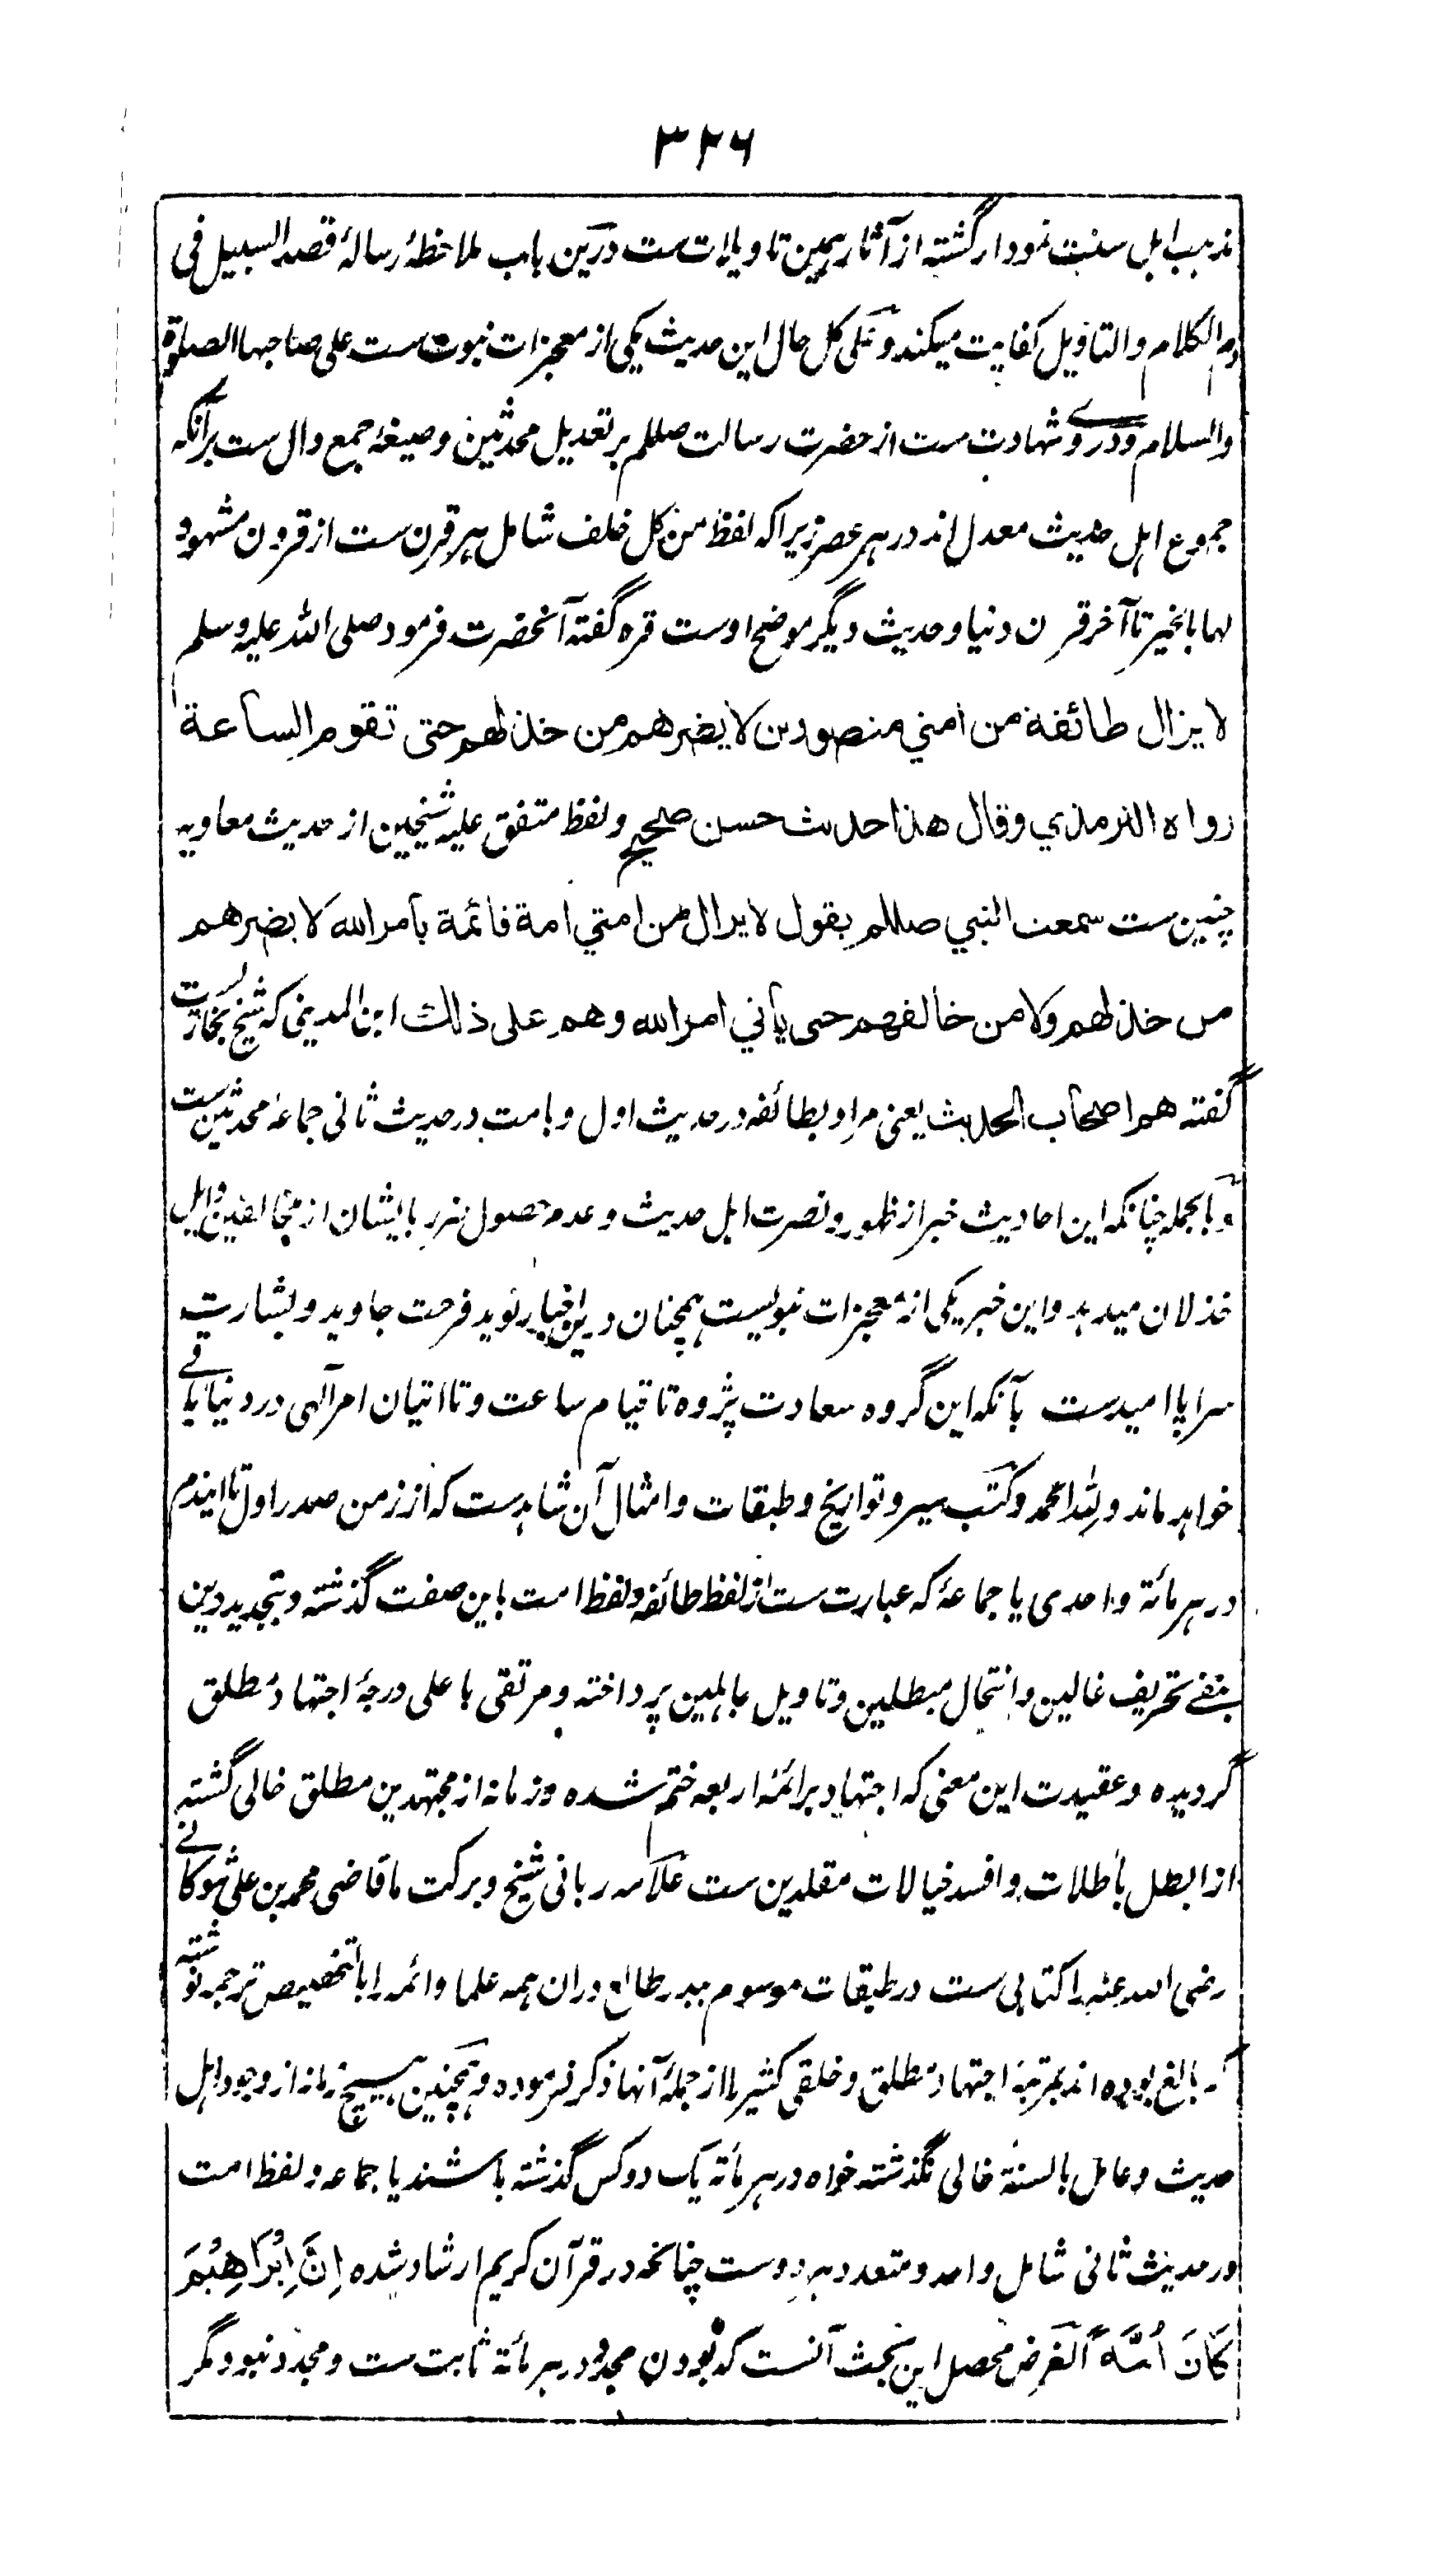 ۳۲۶
مذهب اهل سنت نمودار گشته از آثار همین تاویلات ست درین باب ملاحظهٔ رسالهٔ قصد السبیل فی
ذم الکلام والتاویل کفایت میکند وعلی کل حال این حدیث یکی از معجزات نبوت ست علی صاحبها الصلوة
والسلام ودروے شهادت ست از حضرت رسالت صللم بر تعدیل محدثین وصیغهٔ جمع دال ست برآنکه
جموع اهل حدیث معدل اند در هر عصر زیرا که لفظ من کل خلف شامل هر قرن ست از قرون مشهود
لها بالخیر تا آخر قرن دنیا وحدیث دیگر موضح اوست قره گفته آنحضرت فرمود صلی الله علیه وسلم
لا یزال طائفة من امتي منصورین لا یضرهم من خذلهم حتی تقوم الساعة
رواه الترمذي وقال هذا حدیث حسن صحیح ولفظ متفق علیه شیخین از حدیث معاویه
چنین ست سمعت النبي صللم یقول لا یزال من امتي امة قائمة بامر الله لا یضرهم
من خذلهم ولا من خالفهم حتی یاتي امر الله وهم علی ذلك ابن المدینی که شیخ بخاریست
گفته هم اصحاب الحدیث یعنی مراد بطائفه در حدیث اول وبامت در حدیث ثانی جماعهٔ محدثین ست
وبالجمله چنانکه این احادیث خبر از ظهور ونصرت اهل حدیث وعدم حصول ضرر بایشان از مخالفین واهل
خذلان میدهد واین خبر یکی از معجزات نبویست همچنان درین اخبار نوید فرحت جاوید وبشارت
سراپا امیدست بآنکه این گروه سعادت پژوه تا قیام ساعت وتا اتیان امر الهی در دنیا باقے
خواهد ماند ولله الحمد وکتب سیر وتواریخ وطبقات وامثال آن شاهدست که از زمن صدر اول تا ایندم
در هر مائة واحدی یا جماعهٔ که عبارت ست از لفظ طائفه ولفظ امت باین صفت گذشته وبتجدید دین
بنفے تحریف غالین وانتحال مبطلین وتاویل جاهلین پرداخته ومرتقی باعلی درجهٔ اجتهاد مطلق
گردیده وعقیدت این معنی که اجتهاد بر ائمهٔ اربعه ختم شده وزمانه از مجتهدین مطلق خالی گشته
از ابطل باطلات وافسد خیالات مقلدین ست علامه ربانی شیخ وبرکت ما قاضی محمد بن علی شوکانے
رضی الله عنه را کتابی ست در طبقات موسوم ببدر طالع دران همه علما وائمه را بالتخصیص ترجمه نوشته
که بالغ بوده اند بمرتبهٔ اجتهاد مطلق وخلقی کثیر را از جملهٔ آنها ذکر فرموده وهمچنین هیچ زمانه از وجود اهل
حدیث وعامل بالسنة خالی نگذشته خواه در هر مائة یک دو کس گذشته باشند یا جماعه ولفظ امت
در حدیث ثانی شامل واحد ومتعدد هر دوست چنانکه در قرآن کریم ارشاد شده اِنَّ اِبْرَاهِیْمَ
کَانَ اُمَّةً الغرض محصل این بحث آنست که بودن مجدد در هر مائة ثابت ست ومجدد نبود مگر